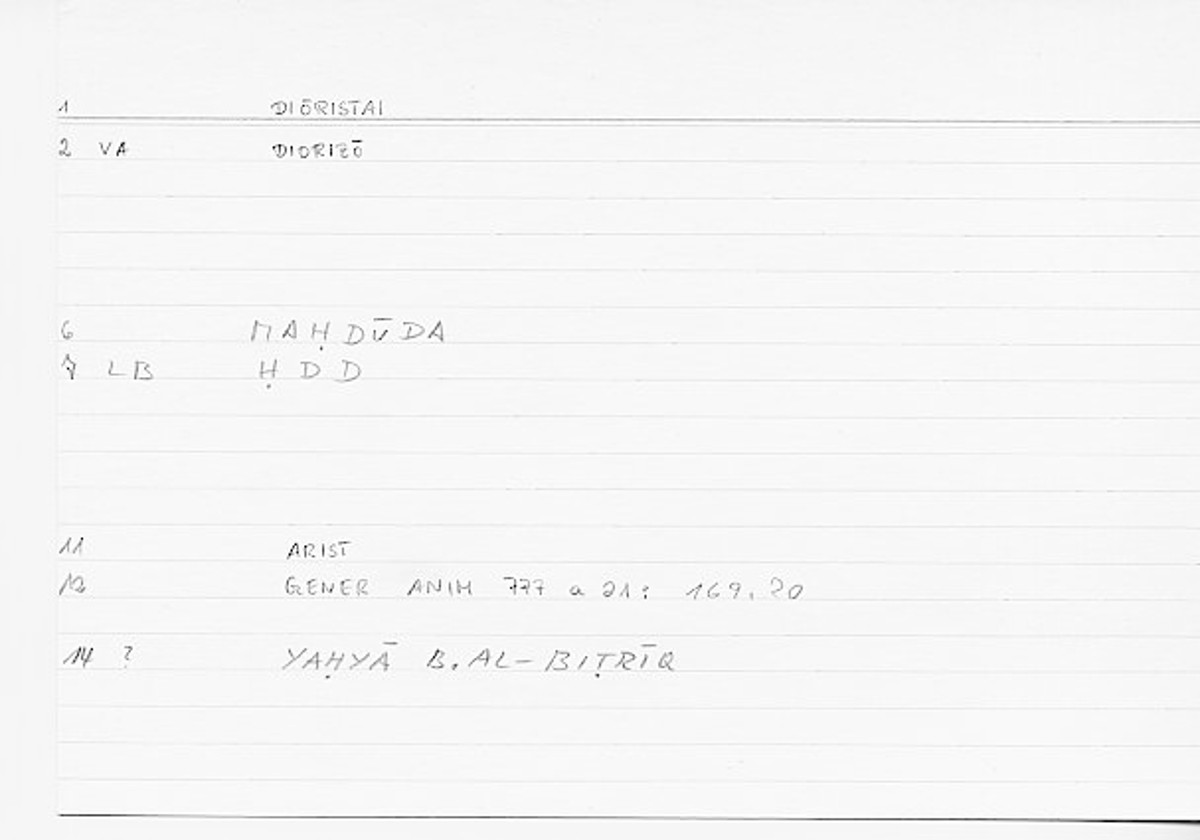 1 DIŌRISTAI
2 VA DIORIZŌ
6 MAḤDŪDA
7 LB ḤDD
11 ARIST
12 GENER ANIM 777 a 21: 169.20
14 ? YAḤYĀ B. AL-BIṬRĪQ